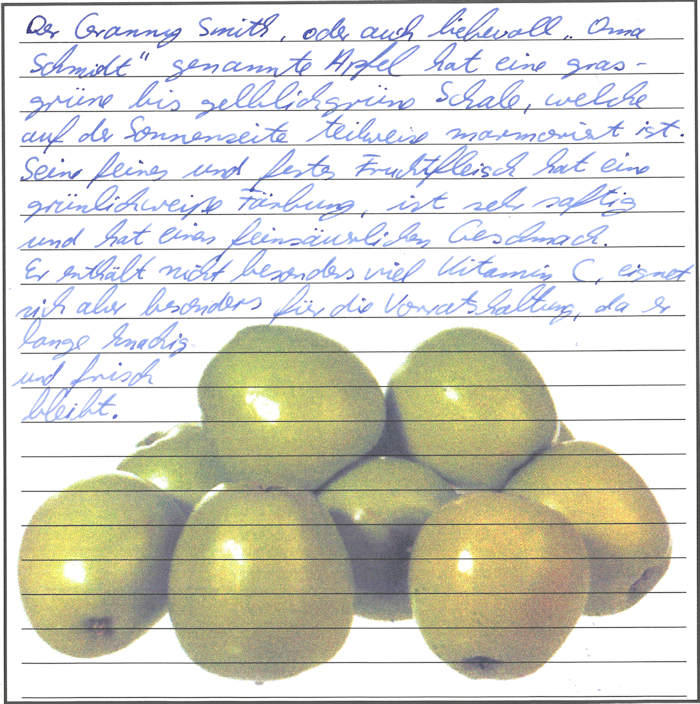 Der Granny Smith, oder auch liebevoll „Oma
Schmidt" genannte Apfel hat eine gras-
grüne bis gelblichgrüne Schale, welche
auf der Sonnenseite teilweise marmoriert ist.
Seine feines und festes Fruchtfleisch hat eine
grünlichweiße Färbung, ist sehr saftig
und hat einen feinsäuerlichen Geschmack.
Er enthält nicht besonders viel Vitamin C, eignet
sich aber besonders für die Vorratshaltung, da er
lange knackig
und frisch
bleibt.